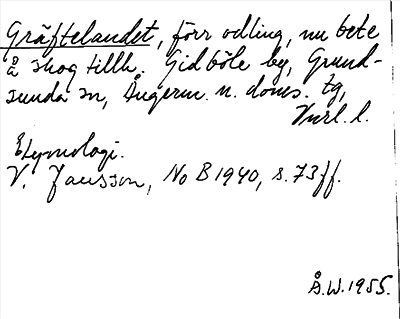 Gräftelandet, förr odling, nu bete
å skog tillh. Gidböle by, Grund-
sunda sn, Ångerm. n. doms. tg,
Vnrl. l.
Etymologi.
V. Jansson, NoB 1940, s. 73 ff.
Å.W. 1955.